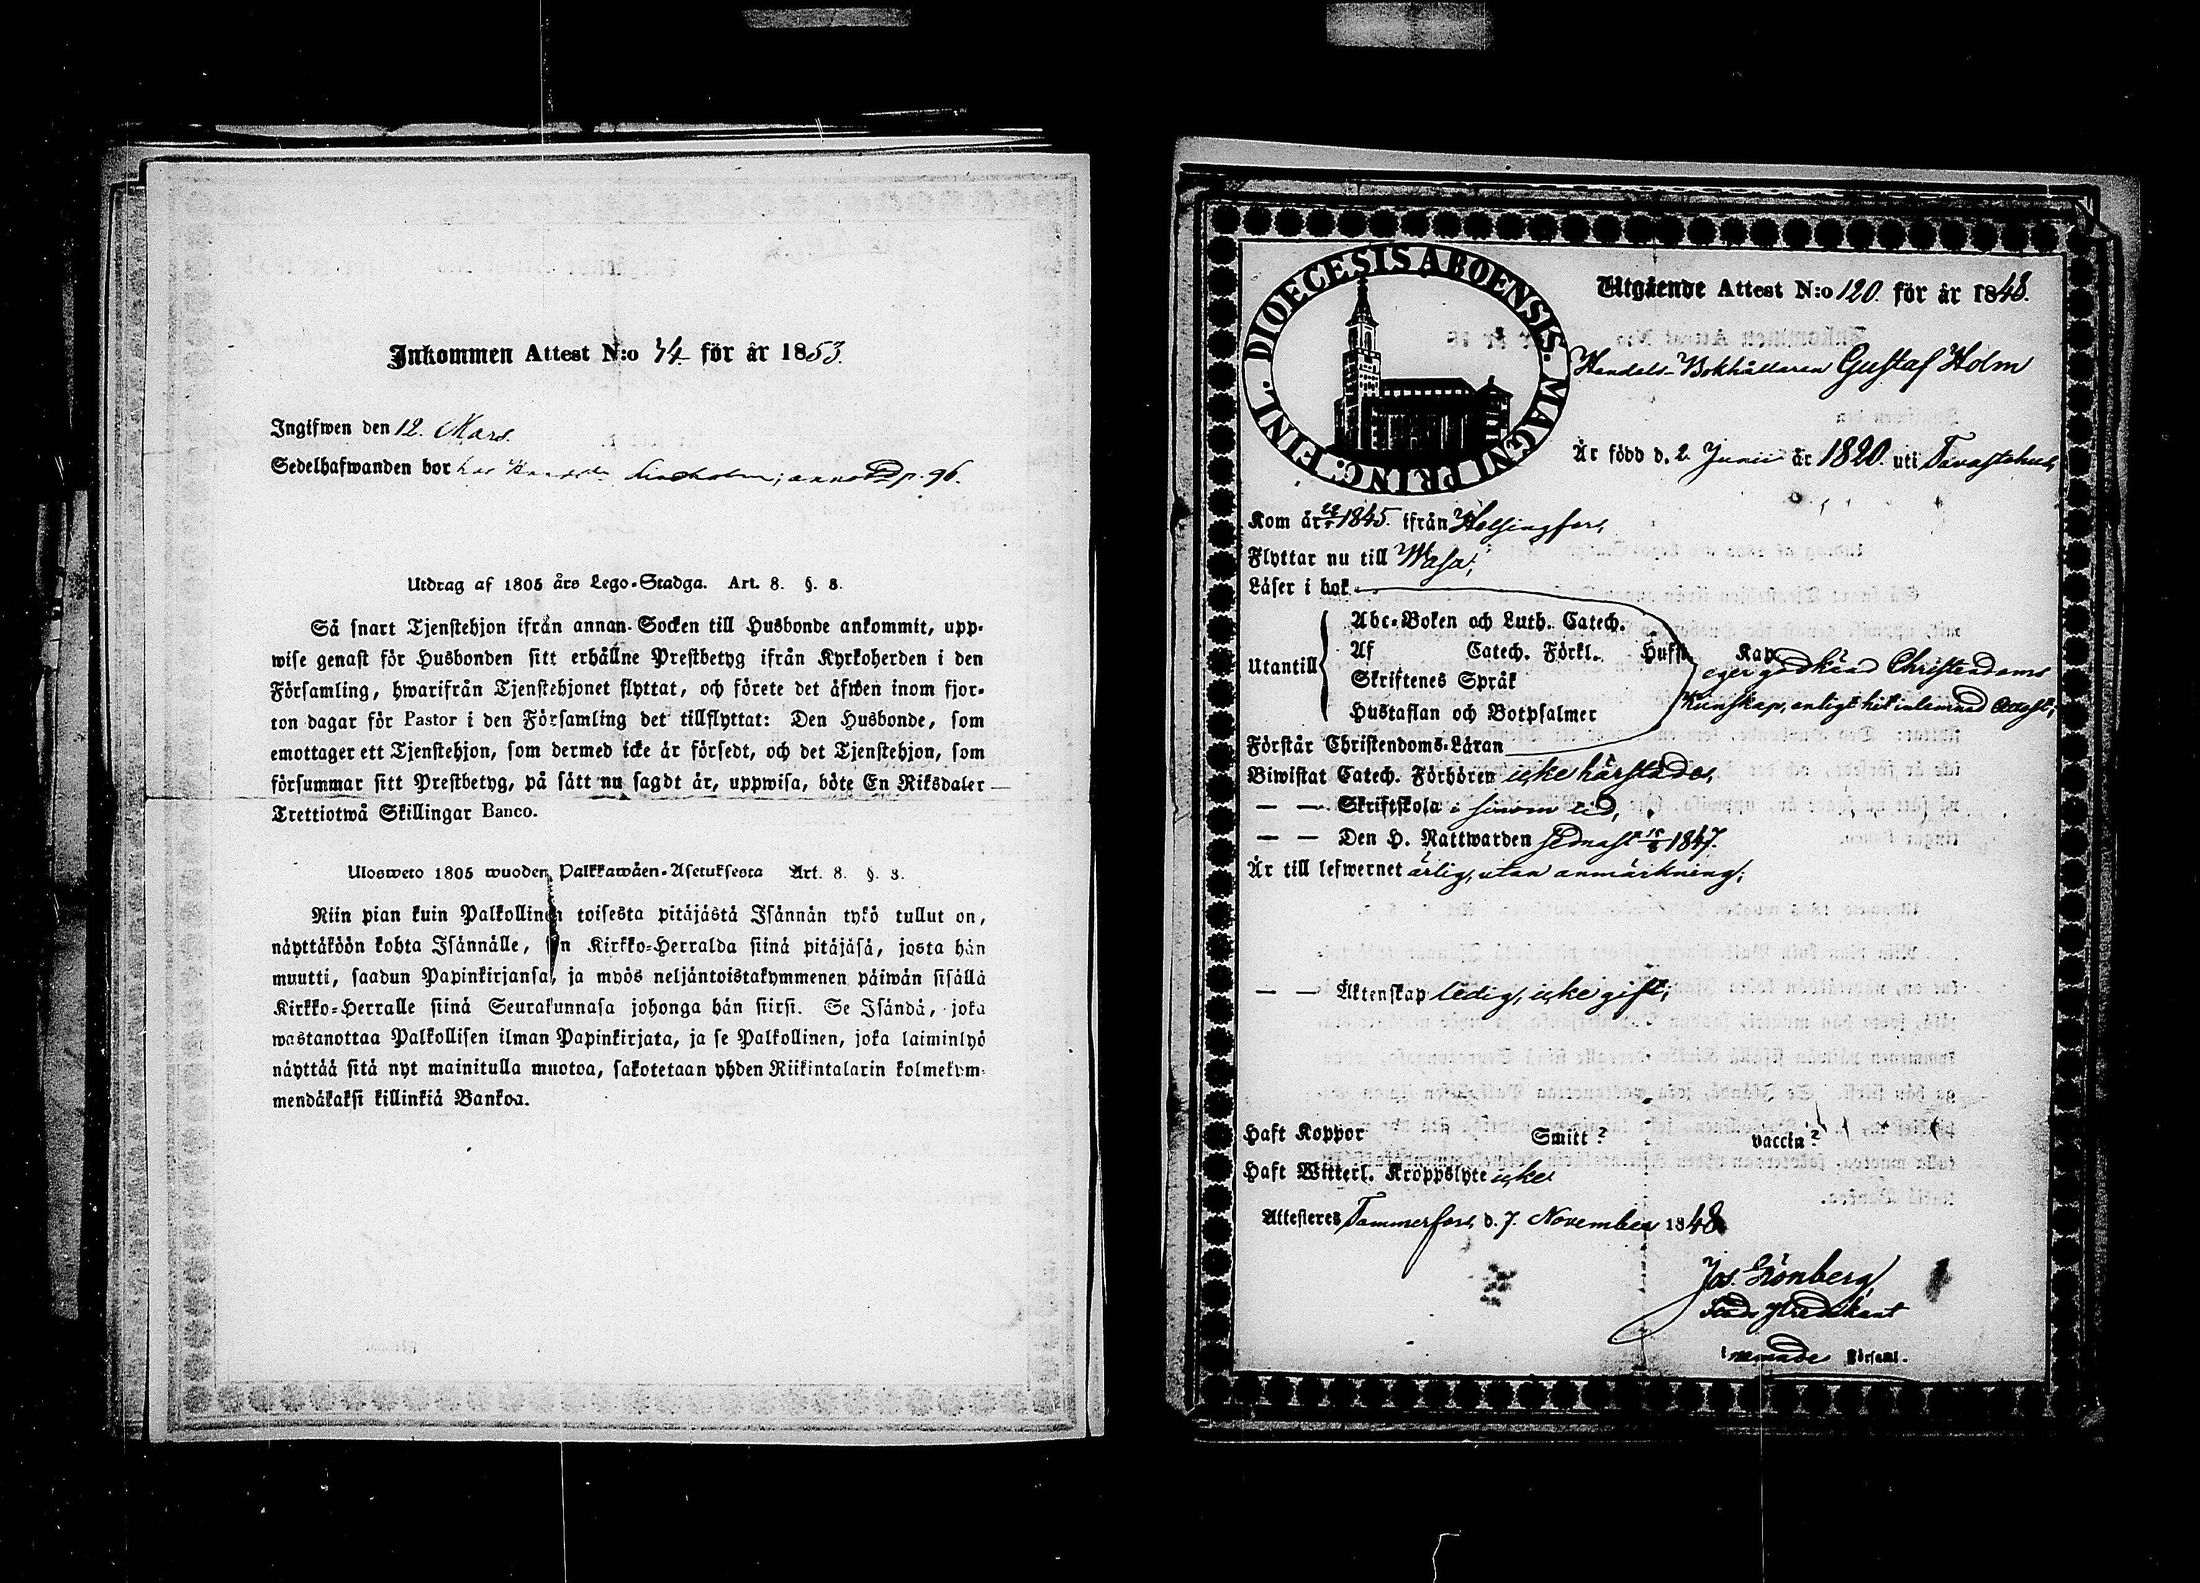 Inkommen Attest N:o 74 för år 1853.
Ingifwen den 12. Mars.
Sedelhafwanden bor hos p. 96.
Utdrag af 1805 års Lego-Stadga. Art. 8. §. 8.
Så snart Tjenstehjon ifrån annan Socken till Husbonde ankommit, upp-
wise genast för Husbonden sitt erhållne Prestbetyg ifrån Kyrkoherden i den
Församling, hwarifrån Tjenstehjonet flyttat, och förete det äfwen inom fjor-
ton dagar för Pastor i den Församling det tillflyttat: Den Husbonde, som
emottager ett Tjenstehjon, som dermed icke är försedt, och det Tjenstehjon, som
försummar sitt Prestbetyg, på sätt nu sagdt är, uppwisa, böte En Riksdaler
Trettiotwå Skillingar Banco.
Ulosweto 1805 wuoden Palkkawäen-Asetuksesta Art. 8. §. 8.
Niin pian kuin Palkollinen toisesta pitäjästä Isännän tykö tullut on,
näyttäköön kohta Isännälle, sen Kirkko-Herralda siinä pitäjäsä, josta hän
muutti, saadun Papinkirjansa, ja myös neljäntoistakymmenen päiwän sisällä
Kirkko-Herralle siinä Seurakunnasa johonga hän siirsi. Se Isändä, joka
wastanottaa Palkollisen ilman Papinkirjata, ja se Palkollinen, joka laiminlyö
näyttää sitä nyt mainitulla muotoa, sakotetaan yhden Riikintalarin kolmekym-
mendäkaksi killinkiä Bankoa.
DIOECESIS ABOENSIS. MAGNI PRINC. FINL.
Utgående Attest N:o 120. för år 1848.
Handels-Bokhållaren Gustaf Holm
Är född d. 2. Junii år 1820. uti Tavastehus,
Kom år 1845. ifrån Helsingfors,
Flyttar nu till Wasa;
Läser i bok
Utantill
Abc-Boken och Luth. Catech.
Af Catech. Förkl. Hufst. Kap.
Skriftenes Språk
Hustaflan och Botpsalmer
eger godkänd Christendoms
kunskap, enligt hit inlemnad attest;
Förstår Christendoms-Läran
Biwistat Catech. Förhören icke härstädes,
— — Skriftskola i sinom tid,
— — Den H. Nattwarden sednast 1847.
Är till lefwernet ärlig, utan anmärkning;
— — Äktenskap ledig, icke gift;
Haft Koppor Smitt? vaccin?
Haft Witterl. Kroppslyte icke
Attesteres Tammerfors, d. 7. November 1848
Jos. Grönberg
Stads Predikant
i nemnde Församl.